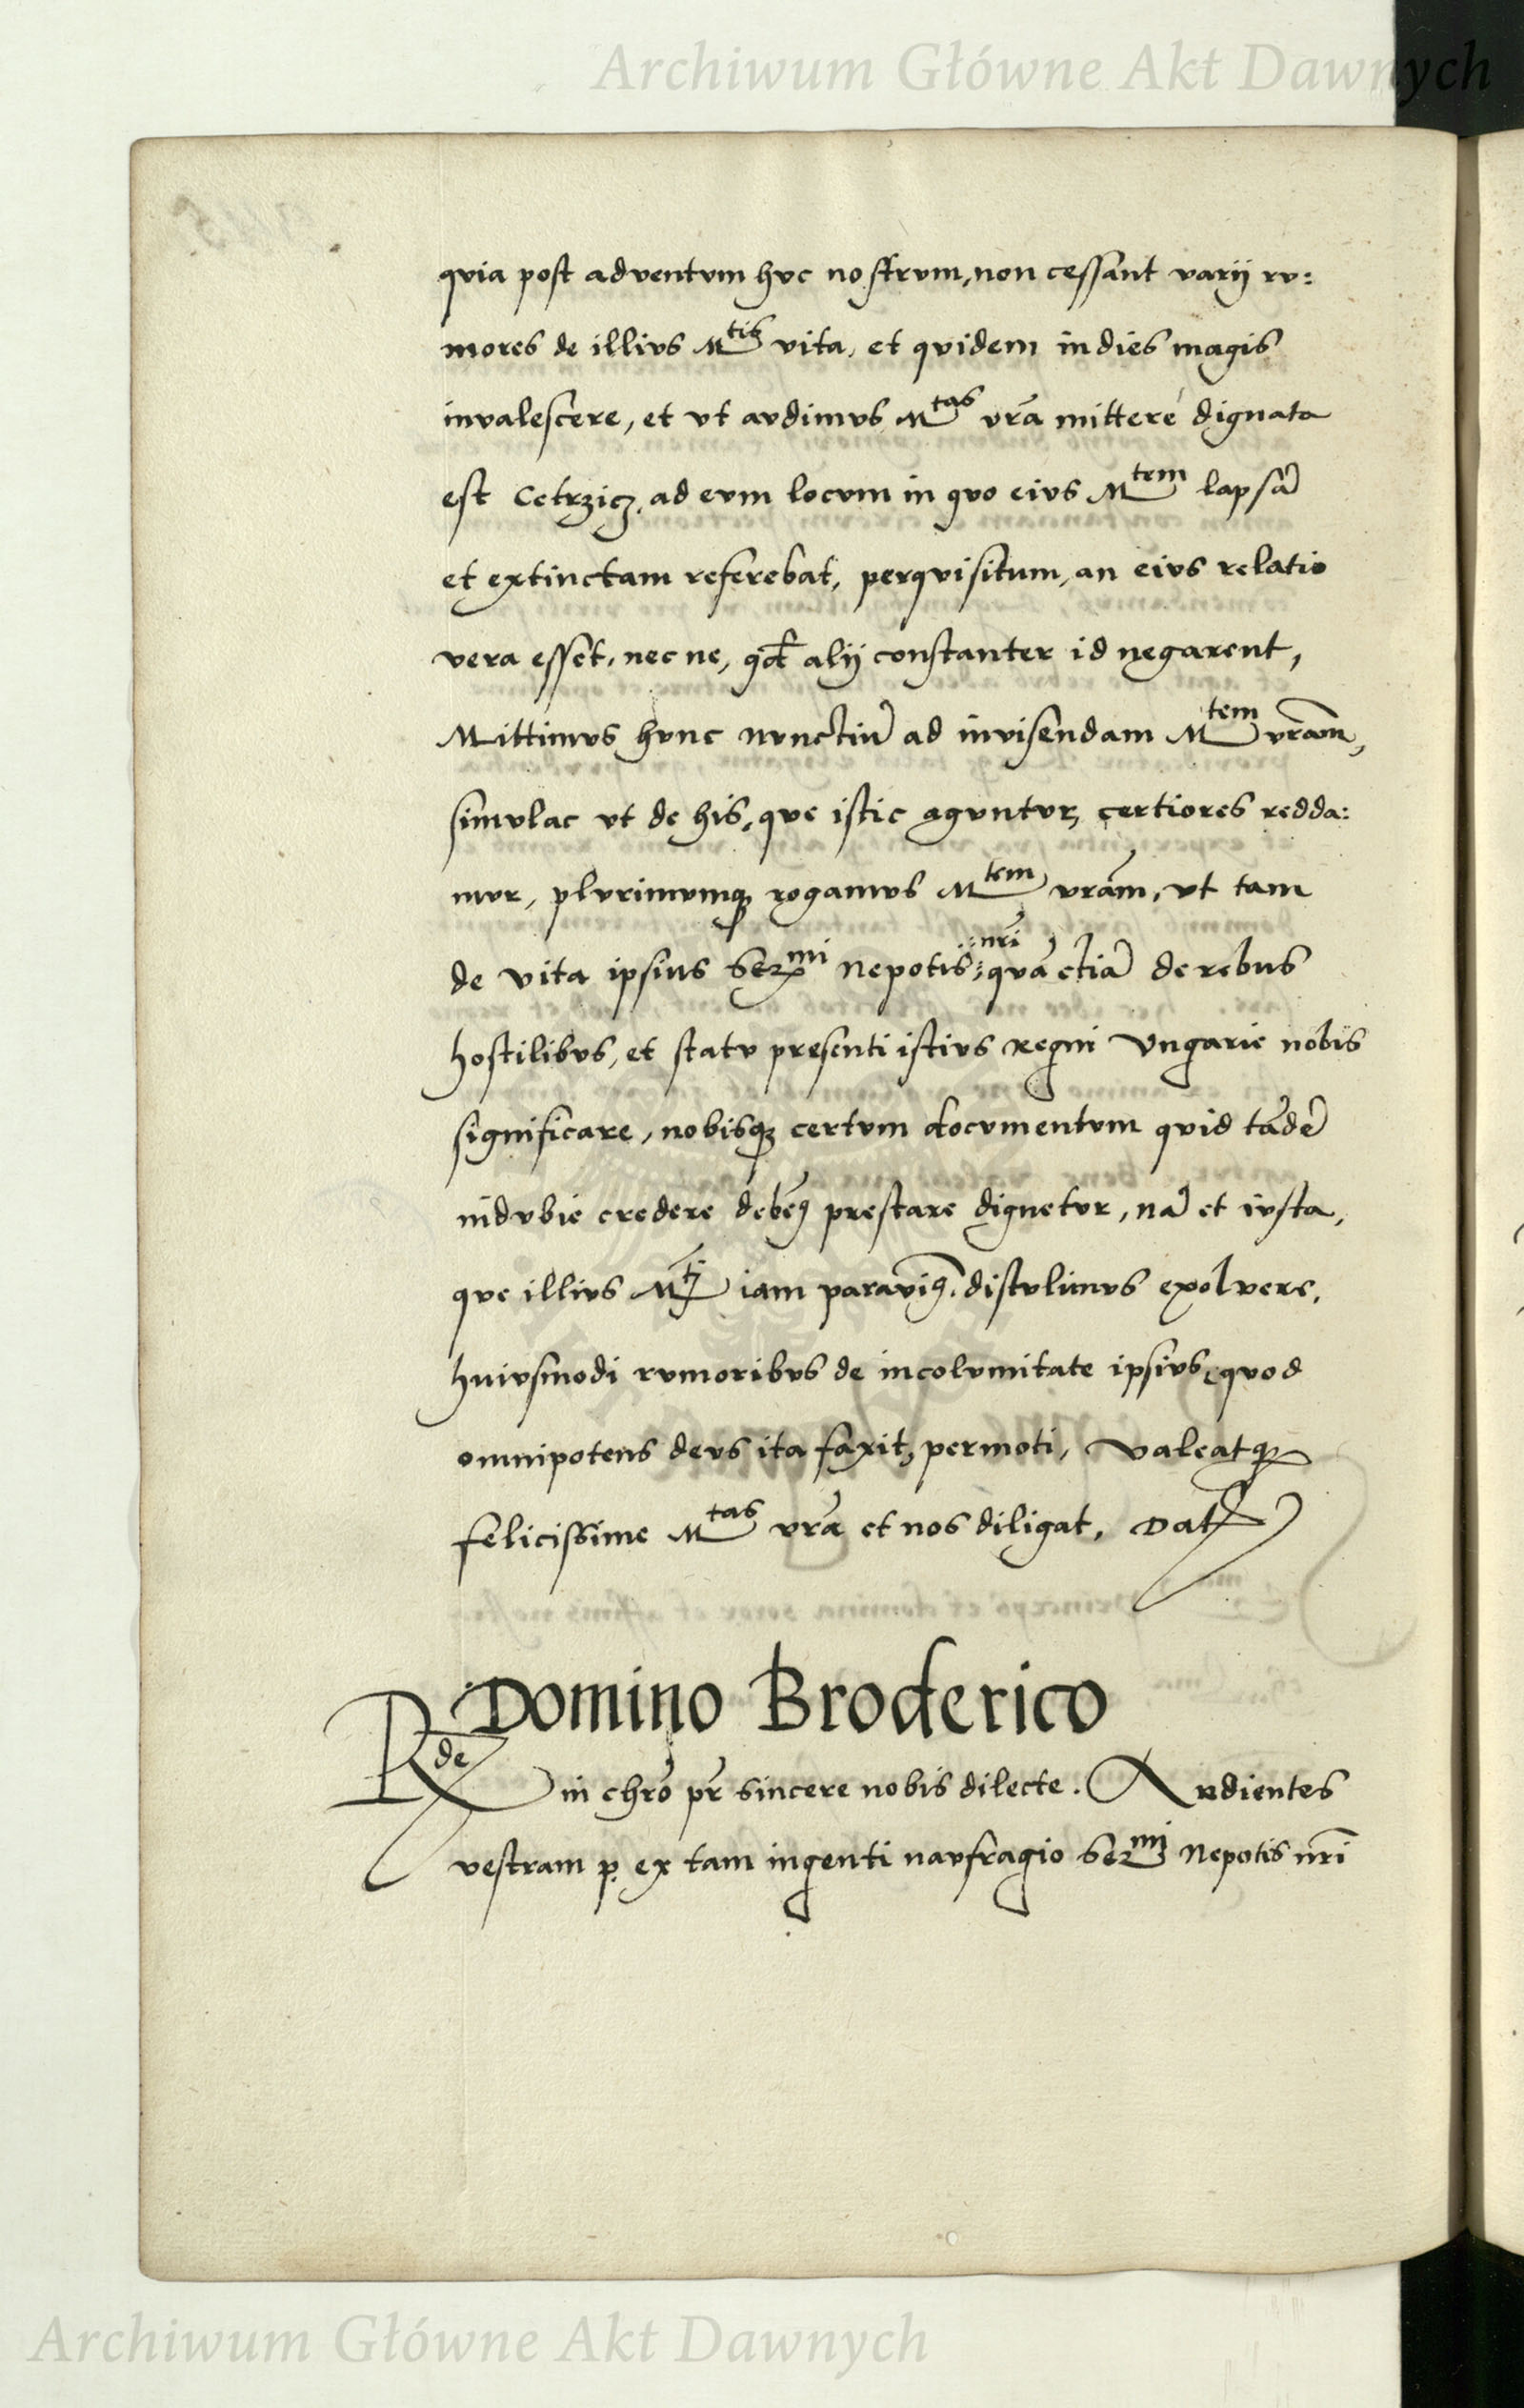 Archiwum Główne Akt Dawnych
qvia post adventvm hvc nostrvm, non cessant varij rv:
mores de illivs M^tis vita, et qvidem in dies magis
invalescere, et vt avdimvs M^tas vrã mittere dignata
est Cetrzicz, ad evm locvm in qvo eivs M^tem lapsã
et extinctam referebat, perqvisitum, an eivs relatio
vera esset, nec ne, qd alij constanter id negarent,
Mittimvs hvnc nvnctiũ ad invisendam M^tem vram̃,
simvlac vt de his, qve istic agvntvr, certiores redda:
mvr, plvrimvmqz rogamvs M^tem vrãm, vt tam
de vita ipsius Ser^mi Nepotis nrĩ qvã etiã de rebus
hostilibvs, et statv presenti istivs Regni Vngarie nobis
significare, nobisqz certvm docvmentvm qvid tãdẽ
indvbie credere debẽꝰ prestare dignetvr, nã et ivsta,
qve illivs M^ti iam paravĩꝰ, distvlimvs exolvere,
huivsmodi rvmoribvs de incolvmitate ipsivs, qvod
omnipotens devs ita faxit, permoti, Valeatqz
felicissime M^tas vrã et nos diligat, Dat
Domino Broderico
R^de in chrõ pr̃ sincere nobis dilecte. Audientes
vestram p. ex tam ingenti navfragio Ser^mi Nepotis nrĩ
Archiwum Główne Akt Dawnych